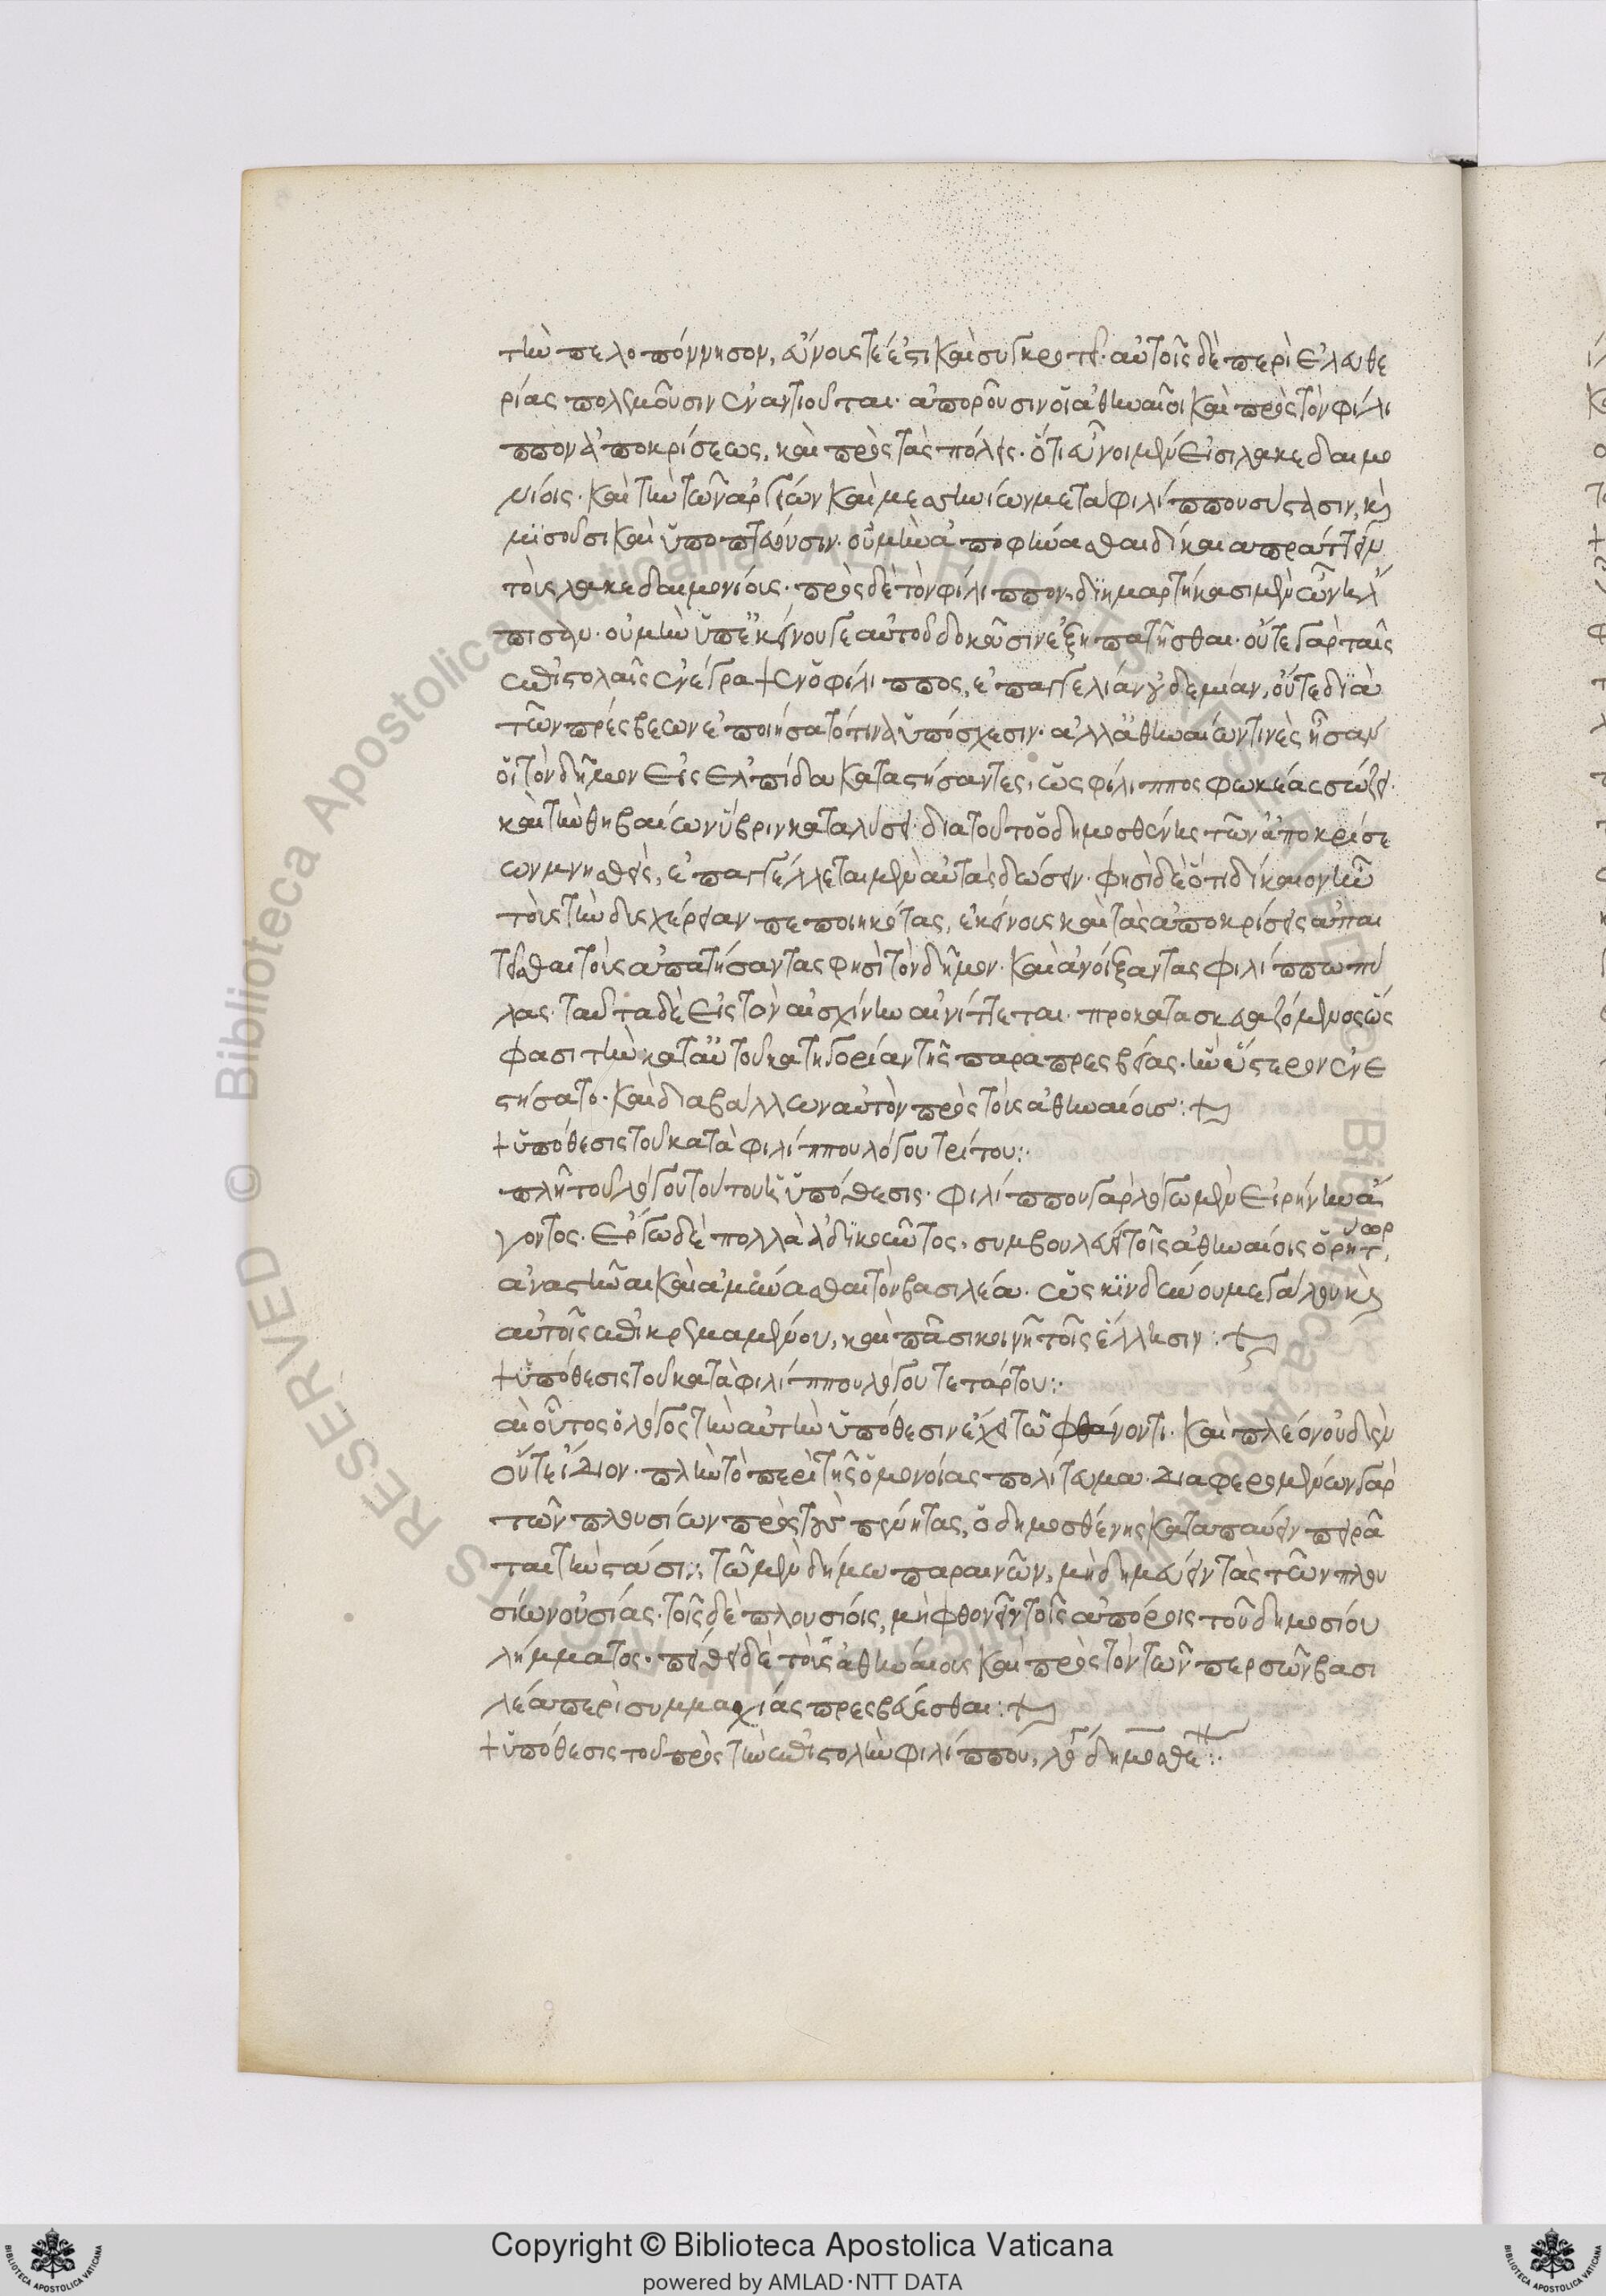 τὴν πελοπόννησον, εὔνους τέ ἐστι καὶ συγκροτεῖ· αὐτοῖς δὲ περὶ ἐλευθε
ρίας πολεμοῦσιν ἐναντιοῦται· ἀποροῦσιν οἱ ἀθηναῖοι καὶ πρὸς τὸν φίλι
ππον ἀποκρίσεως, καὶ πρὸς τὰς πόλεις· ὅτι εὖνοι μέν εἰσι λακεδαιμο
νίοις· καὶ τὴν τῶν ἀργείων καὶ μεσσηνίων μετὰ φιλίππου σύστασιν, καὶ
μισοῦσι καὶ ὑποπτεύουσιν· οὐ μὴν ἀποφήνασθαι δίκαια πράττειν
τοὺς λακεδαιμονίους· πρὸς δὲ τὸν φίλιππον, διημαρτήκασι μὲν ὧν ἤλ
πισαν· οὐ μὴν ὑπ' ἐκείνου γε αὐτοῦ δοκοῦσιν ἐξηπατῆσθαι· οὔτε γὰρ ταῖς
ἐπιστολαῖς ἐνέγραψεν ὁ φίλιππος, ἐπαγγελίαν οὐδεμίαν, οὔτε διὰ
τῶν πρέσβεων ἐποιήσατό τινα ὑπόσχεσιν· ἀλλ' ἀθηναίων τινὲς ἦσαν
οἱ τὸν δῆμον εἰς ἐλπίδα καταστήσαντες, ὡς φίλιππος φωκέας σώζει·
καὶ τὴν θηβαίων ὕβριν καταλύσει· διὰ τοῦτο ὁ δημοσθένης τῶν ἀποκρίσε
ων μνησθεὶς, ἐπαγγέλλεται μὲν αὐτὰς δώσειν· φησὶ δὲ ὅτι δίκαιον ἦν
τοὺς τὴν δυσχέρειαν πεποιηκότας, ἐκείνους καὶ τὰς ἀποκρίσεις ἀπαι
τεῖσθαι τοὺς ἀπατήσαντας φησὶ τὸν δῆμον· καὶ ἀνοίξαντας φιλίππω πύ
λας· ταῦτα δὲ εἰς τὸν αἰσχίνην αἰνίττεται· προκατασκευαζόμενος ὥς
φασι τὴν κατ' αὐτοῦ κατηγορίαν τῆς παραπρεσβείας· ἣν ὕστερον ἐνε
στήσατο· καὶ διαβάλλων αὐτὸν πρὸς τοὺς ἀθηναίους:
+ ὑπόθεσις τοῦ κατὰ φιλίππου λόγου τρίτου:·
ἁπλῆ τοῦ λόγου τούτου ἡ ὑπόθεσις· φιλίππου γὰρ λόγω μὲν εἰρήνην ἄ
γοντος· ἔργω δὲ πολλὰ ἀδικοῦντος, συμβουλεύει τοῖς ἀθηναίοις ὁ ῥήτωρ,
ἀναστῆναι καὶ ἀμύνασθαι τὸν βασιλέα· ὡς κινδύνου μεγάλου καὶ
αὐτοῖς ἐπικρεμαμένου, καὶ πᾶσι κοινῇ τοῖς ἕλλησιν:
+ ὑπόθεσις τοῦ κατὰ φιλίππου λόγου τετάρτου:·
αὶ οὗτος ὁ λόγος τὴν αὐτὴν ὑπόθεσιν ἔχει τῶ φθάνοντι· καὶ πλέον οὐδὲν
οὔτε ἴδιον· πλὴν τὸ περὶ τῆς ὁμονοίας πολίτευμα· διαφερομένων γὰρ
τῶν πλουσίων πρὸς τοὺς πένητας, ὁ δημοσθένης καταπαύειν πειρᾶ
ται τὴν στάσιν, τῶ μὲν δήμω παραινῶν, μὴ δημεύειν τὰς τῶν πλου
σίων οὐσίας· τοῖς δὲ πλουσίοις, μὴ φθονεῖν τοῖς ἀπόροις τοῦ δημοσίου
λήμματος· πείθει δὲ τοὺς ἀθηναίους καὶ πρὸς τὸν τῶν περσῶν βασι
λέα περὶ συμμαχίας πρεσβεύεσθαι:
+ ὑπόθεσις τοῦ πρὸς τὴν ἐπιστολὴν φιλίππου, λόγου δημοσθένους:·
Copyright © Biblioteca Apostolica Vaticana
powered by AMLAD·NTT DATA